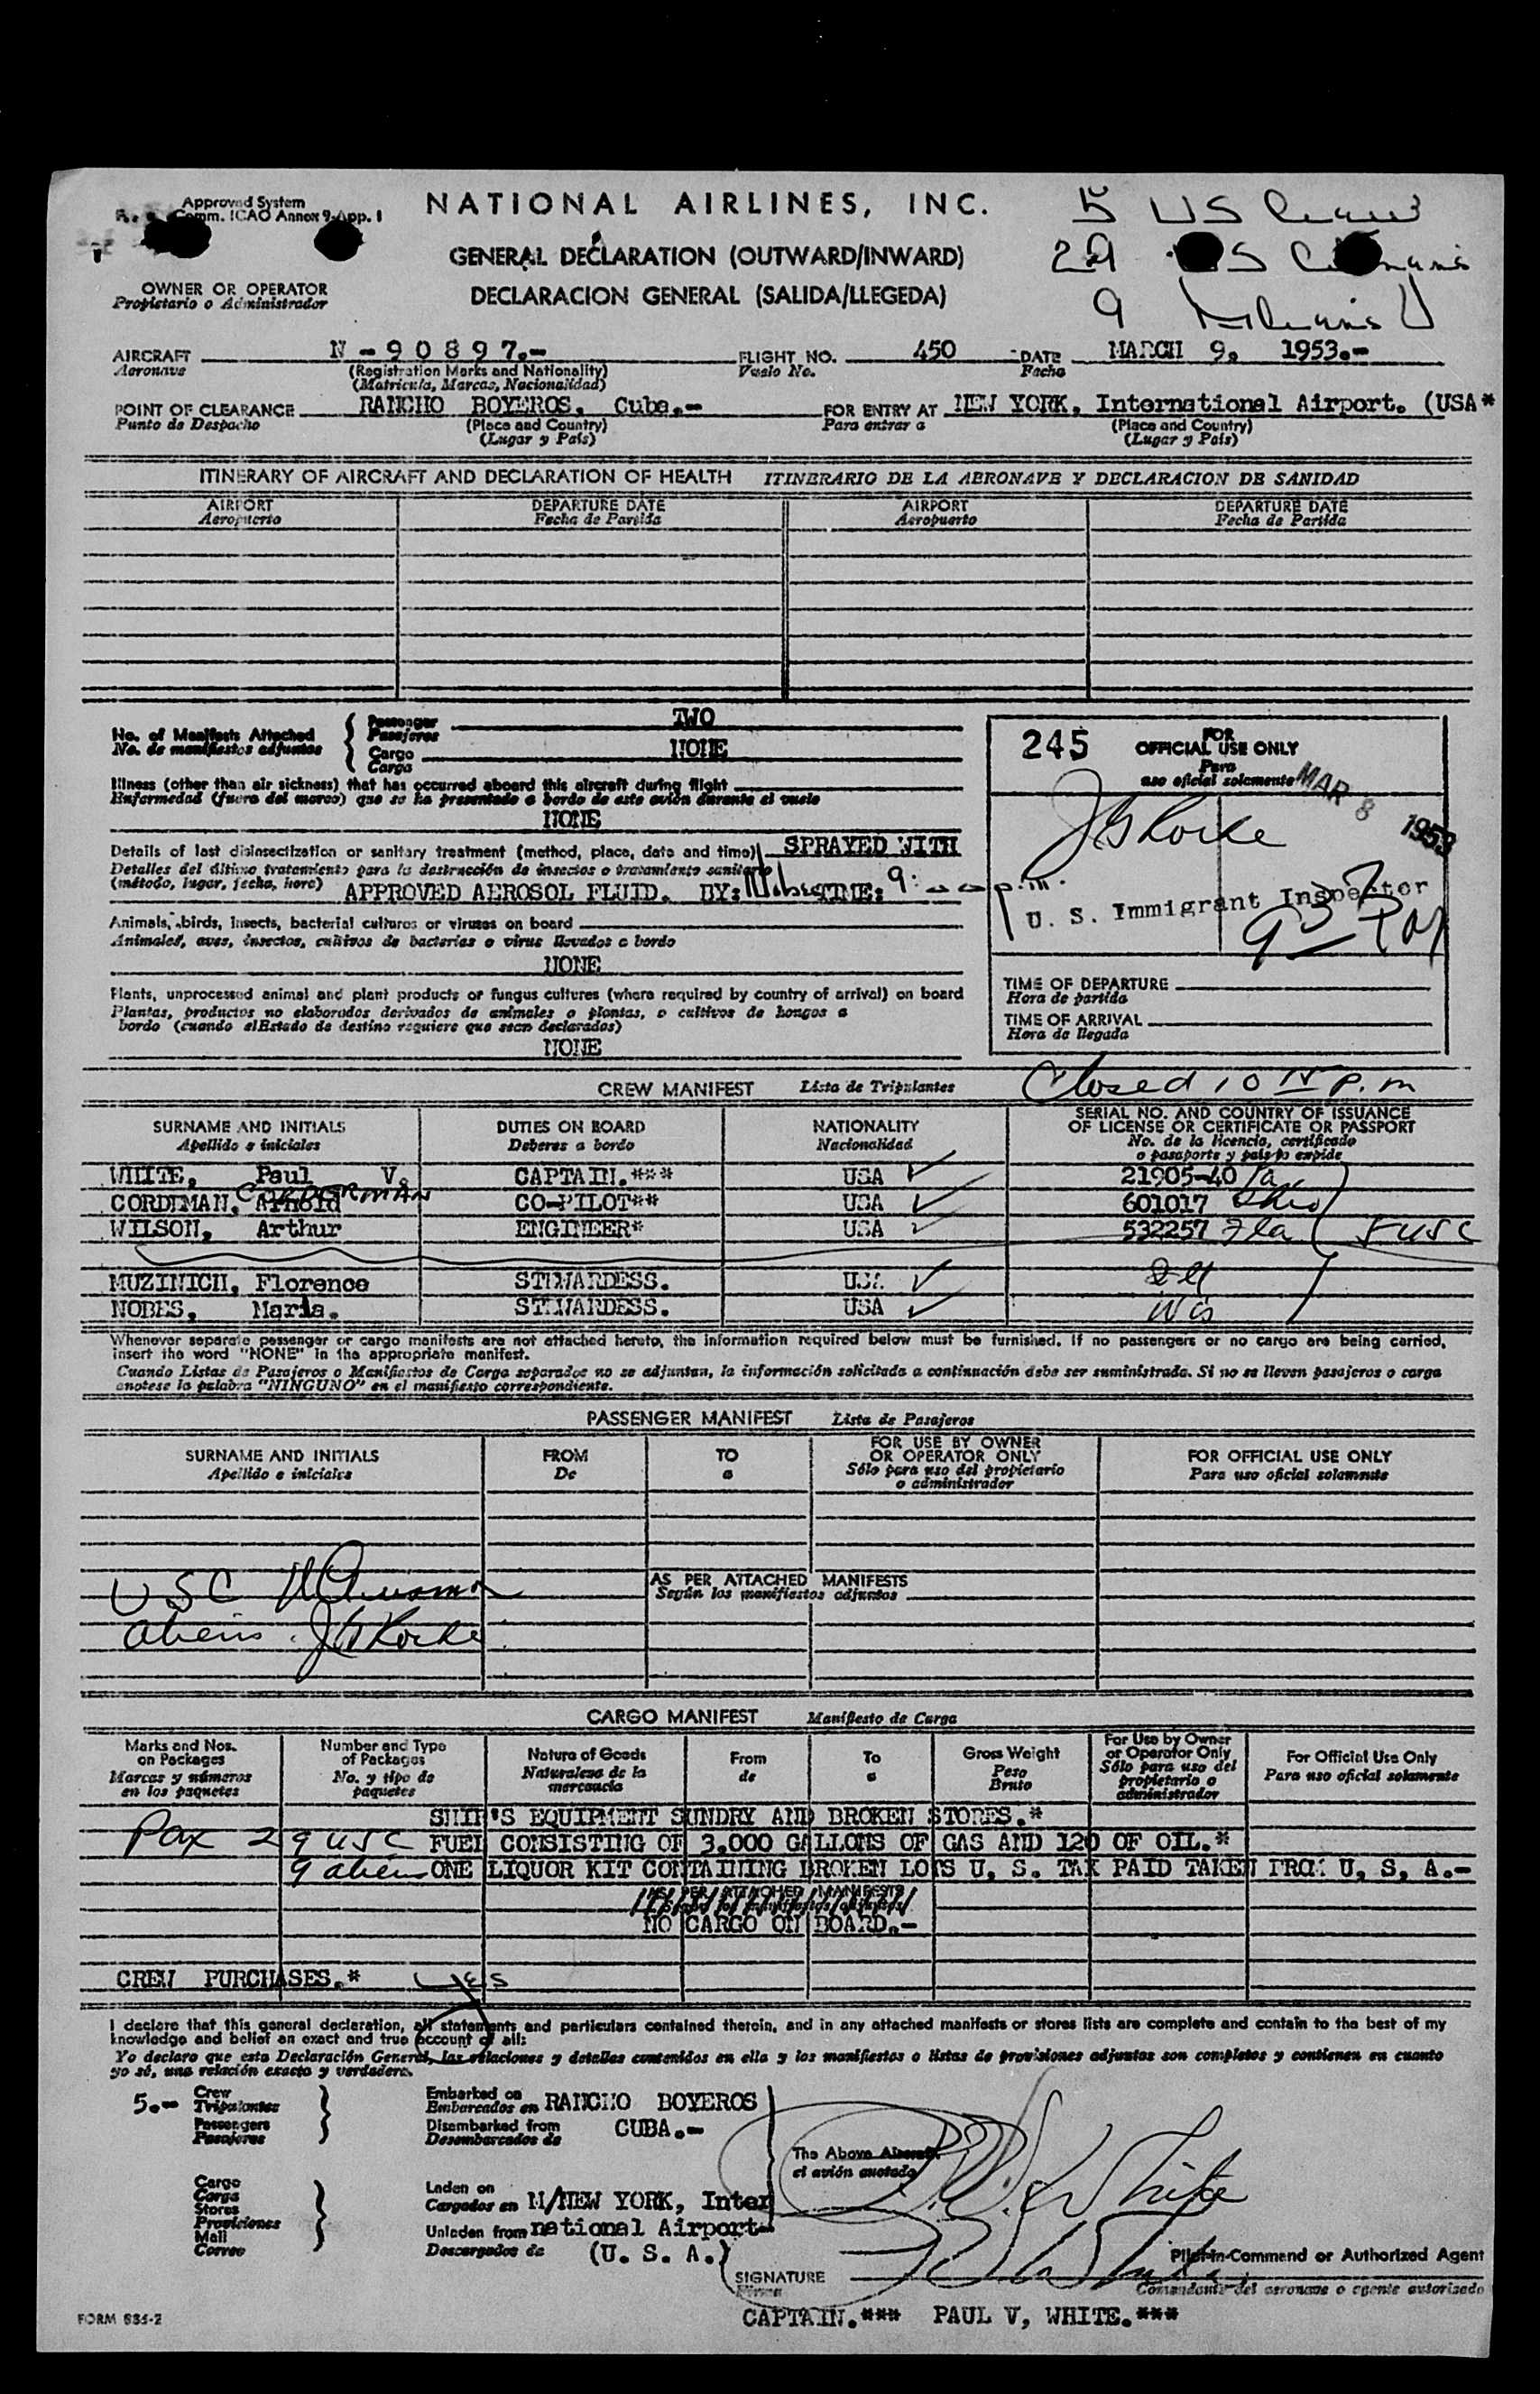 Approved System
Comm. ICAO Annex 9-App. 1
NATIONAL AIRLINES, INC.
5 US
29 US
9
GENERAL DECLARATION (OUTWARD/INWARD)
DECLARACION GENERAL (SALIDA/LLEGEDA)
OWNER OR OPERATOR
Propietario o Administrador
AIRCRAFT N-90897.- FLIGHT NO. 450 DATE MARCH 9, 1953.-
Aeronave (Registration Marks and Nationality) Vuelo No. Fecha
(Matricula, Marcas, Nacionalidad)
POINT OF CLEARANCE RANCHO BOYEROS, Cuba.- FOR ENTRY AT NEW YORK, International Airport. (USA*
Punto de Despacho (Place and Country) Para entrar a (Place and Country)
(Lugar y País) (Lugar y País)
ITINERARY OF AIRCRAFT AND DECLARATION OF HEALTH ITINERARIO DE LA AERONAVE Y DECLARACION DE SANIDAD
AIRPORT DEPARTURE DATE AIRPORT DEPARTURE DATE
Aeropuerto Fecha de Partida Aeropuerto Fecha de Partida
No. of Manifests Attached Passenger TWO
No. de manifiestos adjuntos Pasajeros
Cargo NONE
Carga
245 FOR
OFFICIAL USE ONLY
Para
uso oficial solamente
MAR 8 1953
Illness (other than air sickness) that has occurred aboard this aircraft during flight
Enfermedad (fuera del mareo) que se ha presentado a bordo de este avión durante el vuelo
NONE
Details of last disinsectization or sanitary treatment (method, place, date and time) SPRAYED WITH
Detalles del último tratamiento para la destrucción de insectos o tratamiento sanitario
(método, lugar, fecha, hora) APPROVED AEROSOL FLUID. BY: TIME: 9: p.m.
U. S. Immigrant Inspector
Animals, birds, insects, bacterial cultures or viruses on board
Animales, aves, insectos, cultivos de bacterias o virus llevados a bordo
NONE
Plants, unprocessed animal and plant products or fungus cultures (where required by country of arrival) on board
Plantas, productos no elaborados derivados de animales o plantas, o cultivos de hongos a
bordo (cuando elEstado de destino requiere que sean declarados)
NONE
TIME OF DEPARTURE
Hora de partida
TIME OF ARRIVAL
Hora de llegada
Closed 10 15 p.m
CREW MANIFEST Lista de Tripulantes
SURNAME AND INITIALS DUTIES ON BOARD NATIONALITY SERIAL NO. AND COUNTRY OF ISSUANCE
OF LICENSE OR CERTIFICATE OR PASSPORT
Apellido e iniciales Deberes a bordo Nacionalidad No. de la licencia, certificado
o pasaporte y país lo expide
WHITE, Paul V. CAPTAIN.*** USA 21905-40
CORDEMAN, Arnold CORDERMAN CO-PILOT** USA 601017 Ohio
WILSON, Arthur ENGINEER* USA 532257 Fla 5 USC
MUZINICH, Florence STEWARDESS. USA Ill
NOBES, Maria. STEWARDESS. USA Wis
Whenever separate passenger or cargo manifests are not attached hereto, the information required below must be furnished. If no passengers or no cargo are being carried,
insert the word "NONE" in the appropriate manifest.
Cuando Listas de Pasajeros o Manifiestos de Carga separados no se adjuntan, la información solicitada a continuación debe ser suministrada. Si no se lleven pasajeros o carga
anotese la palabra "NINGUNO" en el manifiesto correspondiente.
PASSENGER MANIFEST Lista de Pasajeros
SURNAME AND INITIALS FROM TO FOR USE BY OWNER
OR OPERATOR ONLY FOR OFFICIAL USE ONLY
Apellido e iniciales De a Sólo para uso del propietario
o administrador Para uso oficial solamente
AS PER ATTACHED MANIFESTS
Según los manifiestos adjuntos
USC
aliens
CARGO MANIFEST Manifiesto de Carga
Marks and Nos.
on Packages
Marcas y números
en los paquetes
Number and Type
of Packages
No. y tipo de
paquetes
Nature of Goods
Naturaleza de la
mercancía
From
de
To
a
Gross Weight
Peso
Bruto
For Use by Owner
or Operator Only
Sólo para uso del
propietario o
administrador
For Official Use Only
Para uso oficial solamente
SHIP'S EQUIPMENT SUNDRY AND BROKEN STORES.*
Pax 29 USC FUEL CONSISTING OF 3.000 GALLONS OF GAS AND 120 OF OIL.*
9 aliens ONE LIQUOR KIT CONTAINING BROKEN LOTS U. S. TAX PAID TAKEN FROM U, S, A.-
AS PER ATTACHED MANIFESTS
NO CARGO ON BOARD.-
CREW PURCHASES.* Yes
I declare that this general declaration, all statements and particulars contained therein, and in any attached manifests or stores lists are complete and contain to the best of my
knowledge and belief an exact and true account of all:
Yo declaro que esta Declaración General, las relaciones y detalles contenidos en ella y los manifiestos o listas de provisiones adjuntas son completos y contienen en cuanto
yo sé, una relación exacta y verdadera.
5.- Crew
Tripulantes
Passengers
Pasajeros
Embarked on
Embarcados en RANCHO BOYEROS
Disembarked from CUBA.-
Desembarcados de
The Above Aircraft
el avión anotado
Cargo
Carga
Stores
Provisiones
Mail
Correo
Laden on
Cargados en M/NEW YORK, Inter
Unladen from national Airport-
Descargados de (U. S. A.)
P. V. White
Pilot-in-Command or Authorized Agent
SIGNATURE
Firma
Comandante del aeronave o agente autorizado
CAPTAIN.*** PAUL V, WHITE.***
FORM 885-2